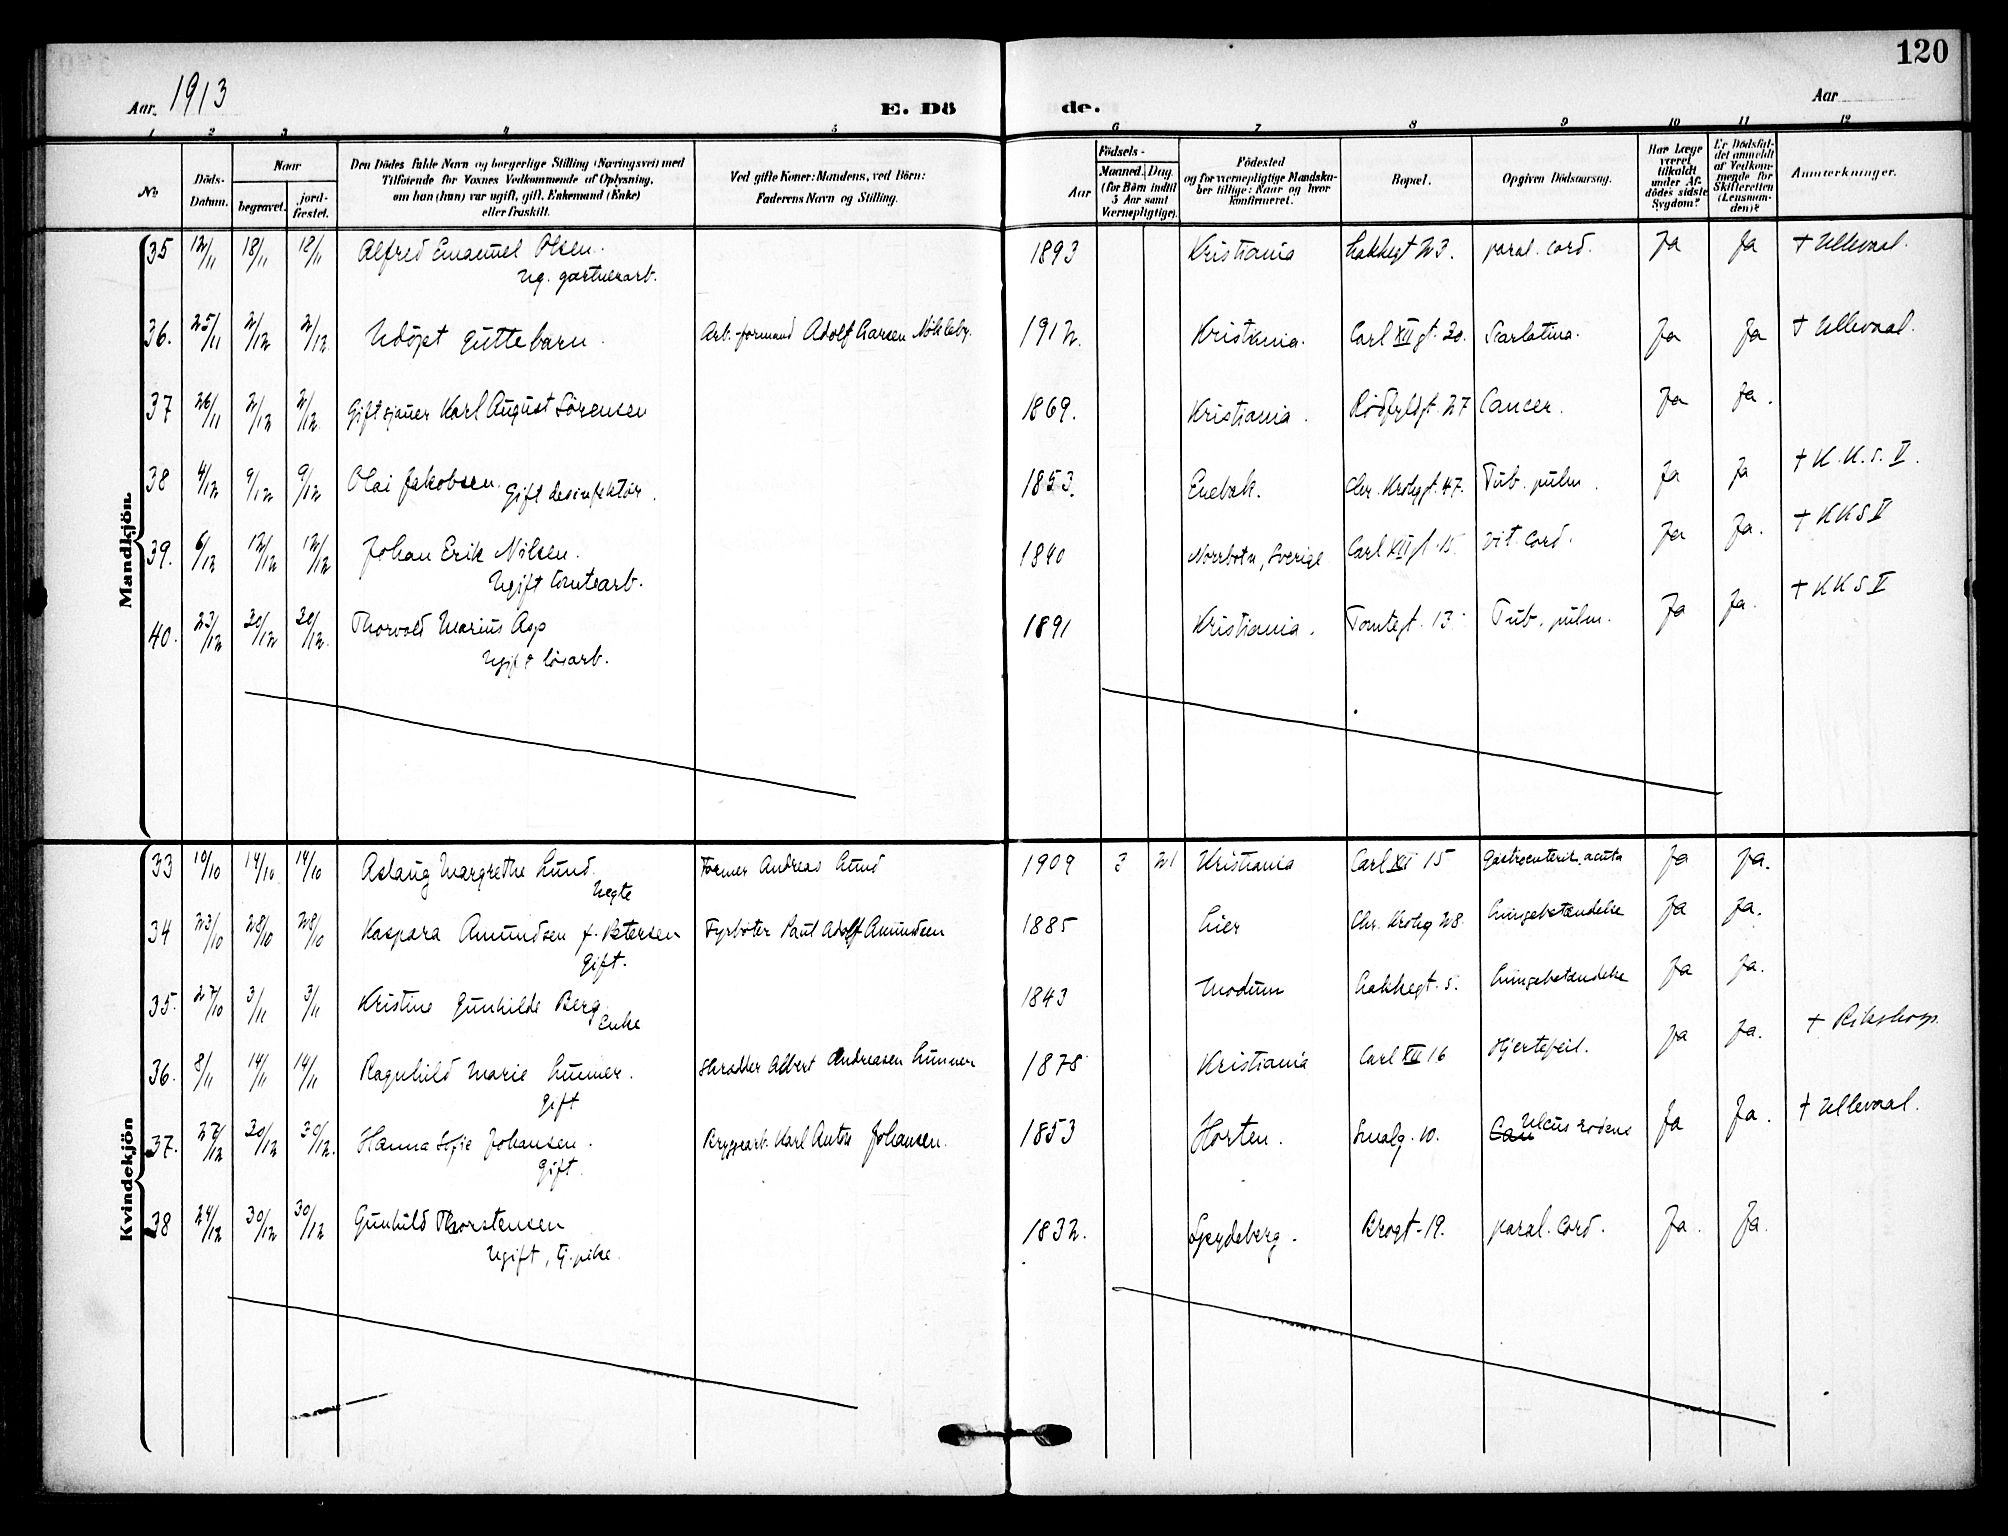 120
Aar. 1913
E. Dö
de.
Aar
1 2 3 4 5 6 7 8 9 10 11 12
No
Döds-Datum.
Naar
begravet.
jord-fæstet.
Den Dödes fulde Navn og borgerlige Stilling (Næringsvei) med
Tilføiende for Voxnes Vedkommende af Oplysning,
om han (hun) var ugift, gift, Enkemand (Enke)
eller fraskilt.
Ved gifte Koner: Mandens, ved Börn:
Faderens Navn og Stilling.
Födsels-
Aar
Maaned. Dag.
(for Børn indtil
5 Aar samt
Værnepligtige).
Födested
og for værnepligtige Mandska-
ber tillige: Naar og hvor
konfirmeret.
Bopæl.
Opgiven Dödsaarsag.
Har Læge
været
tilkaldt
under Af-
dödes sidste
Sygdom?
Er Dödsfal-
det anmeldt
af Vedkom-
mende for
Skifteretten
(Lensman-
den)?
Anmerkninger.
Mandkjön
35 12/11 18/11 12/11 Alfred Emanuel Olsen. 1893 Kristiania Lakkegt 23. paral. cord. Ja Ja + Ullevaal.
Ug. gartnerarb.
36. 25/11 2/12 2/12. Udöpt guttebarn. Arb.formand Adolf Larsen Nökleby. 1912. Kristiania. Carl XII gt. 20. Scarlatina. Ja Ja + Ullevaal.
37 26/11 2/12 2/12. Gift sjauer Karl August Sörensen 1869. Kristiania. 27 Cancer. Ja Ja.
38 4/12 9/12 9/12 Olai Jakobsen. Gift desinfektör. 1853. Enebak. Chr. Krohgt. 47. Tub. pulm. Ja Ja + K.K.S. V.
39. 6/12 12/12 12/12 Johan Erik Nilsen. 1840 Norrbotn, Sverige Carl XII gt. 15. vit. Cord. Ja Ja. + KKS V
Ugift Tomtearb.
40. 23/12 30/12 30/12. Thorvald Marius Asp 1891 Kristiania. Tomtegt. 13 Tub. pulm. Ja Ja. + KKS V
Ugift lösarb.
Kvindekjön
33 10/10 14/10 14/10 Aslaug Margrethe Lund. Former Andreas Lund 1909 3 21 Kristiania Carl XII 15 Gastroenterit. acuta Ja Ja.
Uegte
34 23/10 28/10 28/10 Kaspara Amundsen f. Petersen Fyrböter Paul Adolf Amundsen 1885 Lier Chr. Krohg 28. Lungebetændelse Ja Ja.
Gift.
35. 27/10 3/11 3/11 Kristine Gunhilde Berg 1843 Modum Lakkegt. 5. Lungebetændelse Ja Ja.
Enke
36. 8/11 14/11 14/11 Ragnhild Marie Lunner. Skrædder Albert Andreasen Lunner 1878 Kristiania Carl XII 16 Hjertefeil. Ja Ja. + Rikshosp.
Gift
37. 27/12 30/12 30/12. Hanna Sofie Johansen. Bryggearb. Karl Anton Johansen. 1853 Horten. Smalg. 10. Ulcus rodens Ja Ja. + Ullevaal.
Gift.
38 24/12 30/12 30/12 Gunhild Thorstensen 1832. Spydeberg. Brogt. 19. paral. Cord. Ja. Ja.
Ugift, tj. pike.